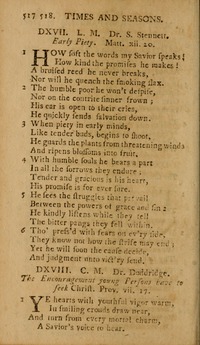 517 518. TIMES AND SEASONS.
DXVII. L. M. Dr. S. Stennett.
Early Piety. Matt. xii. 20.
1 HOW soft the words my Savior speaks!
How kind the promises he makes!
A bruised reed he never breaks,
Nor will he quench the smoking flax.
2 The humble poor he won't despise,
Nor on the contrite sinner frown;
His ear is open to their cries,
He quickly sends salvation down.
3 When piety in early minds,
Like tender buds, begins to shoot,
He guards the plants from threatening winds
And ripens blossoms into fruit.
4 With humble souls he bears a part
In all the sorrows they endure:
Tender and gracious is his heart,
His promise is for ever sure.
5 He sees the struggles that prevail
Between the powers of grace and sin:
He kindly listens while they tell
The bitter pangs they feel within.
6 Tho' press'd with fears on ev'ry side,
They know not how the strife may end;
Yet he will soon the cause decide,
And judgment unto vict'ry send.
DXVIII. C. M. Dr. Doddridge.
The Encouragement young Persons have to
seek Christ. Prov. viii. 17.
1 YE hearts with youthful vigor warm,
In smiling crouds draw near,
And turn from every mortal charm,
A Savior's voice to hear.